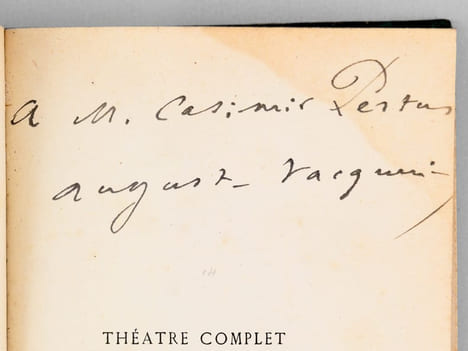 A M. Casimir Pertus
August Vacquerie
THÉATRE COMPLET